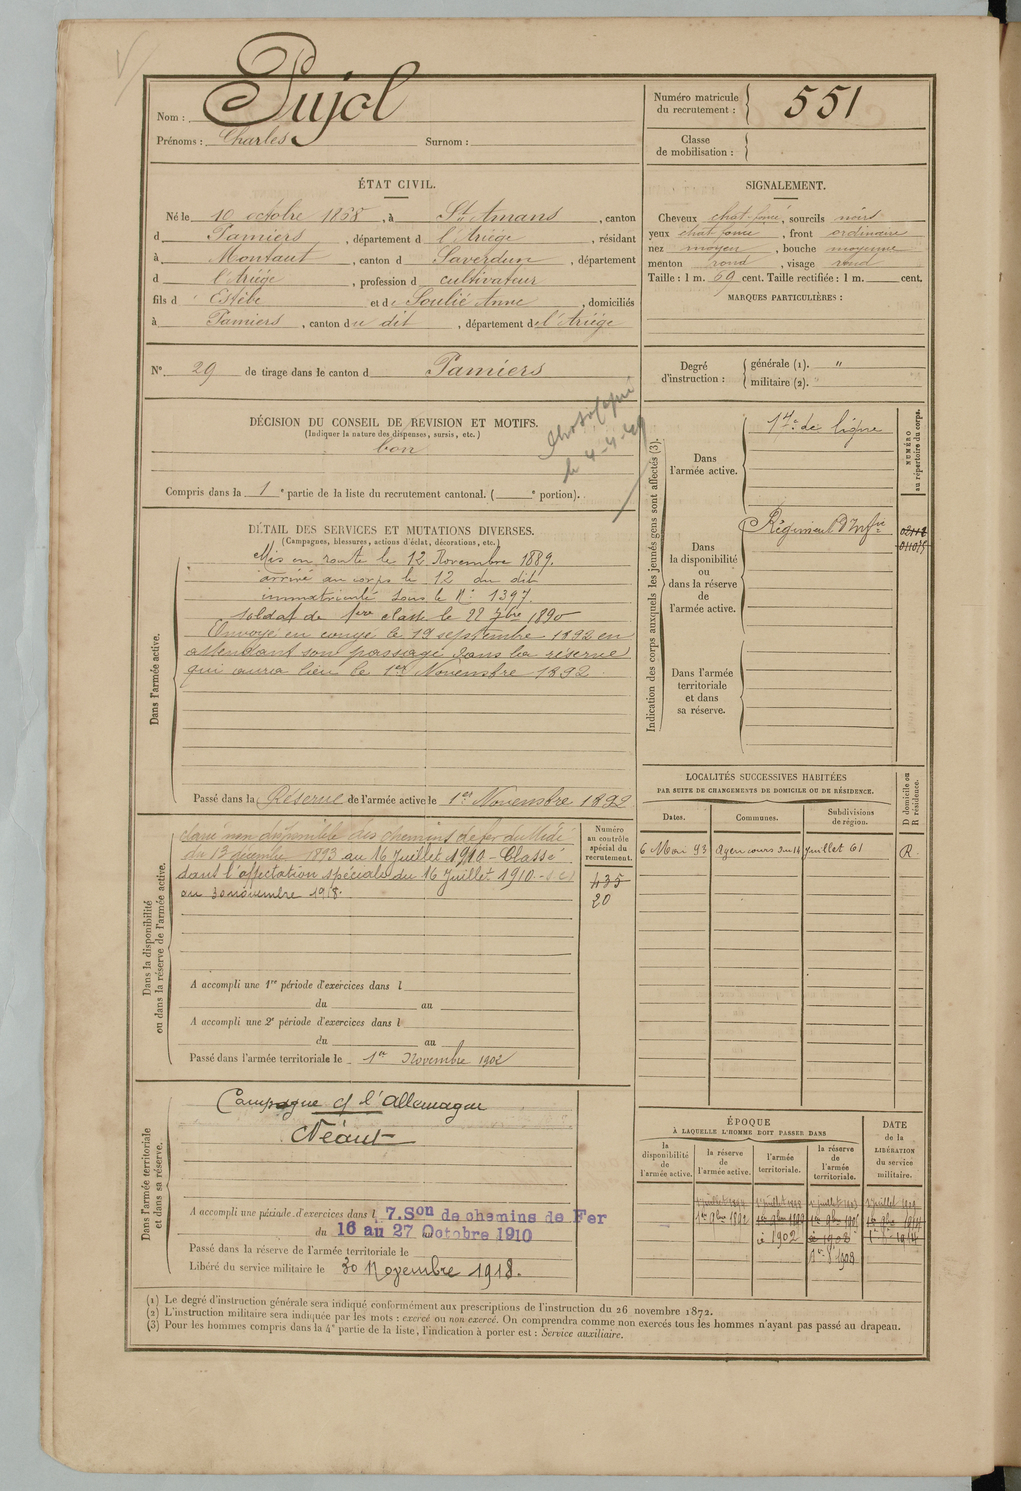 Nom : Pujol
Prénoms : Charles Surnom :
Numéro matricule du recrutement : 551
Classe de mobilisation :
ÉTAT CIVIL.
Né le 10 octobre 1868, à St Amans, canton
d Pamiers, département d l'Ariège, résidant
à Montaut, canton d Saverdun, département
d l'Ariège, profession d cultivateur
fils d Estèbe et de Soulié Anne, domiciliés
à Pamiers, canton du dit, département de l'Ariège
SIGNALEMENT.
Cheveux chat. foncé, sourcils noirs
yeux chat foncé, front ordinaire
nez moyen, bouche moyenne
menton rond, visage rond
Taille : 1 m. 69 cent. Taille rectifiée : 1 m. cent.
MARQUES PARTICULIÈRES :
N° 29 de tirage dans le canton d Pamiers
Degré d'instruction : générale (1). "
militaire (2). "
DÉCISION DU CONSEIL DE REVISION ET MOTIFS.
(Indiquer la nature des dispenses, sursis, etc.)
bon
le 4-4-49
Compris dans la 1e partie de la liste du recrutement cantonal. ( e portion).
DÉTAIL DES SERVICES ET MUTATIONS DIVERSES.
(Campagnes, blessures, actions d'éclat, décorations, etc.)
Dans l'armée active.
Mis en route le 12 Novembre 1889.
arrivé au corps le 12 du dit
immatriculé sous le N° 1397.
soldat de 1ère classe le 22 7bre 1890
Envoyé en congé le 19 septembre 1892 en
attendant son passage dans la réserve
qui aura lieu le 1er Novembre 1892.
Passé dans la Réserve de l'armée active le 1er Novembre 1892
Indication des corps auxquels les jeunes gens sont affectés (3).
Dans l'armée active.
de ligne
NUMÉRO au répertoire du corps.
Dans la disponibilité ou dans la réserve de l'armée active.
Régiment d'Infie
Dans l'armée territoriale et dans sa réserve.
LOCALITÉS SUCCESSIVES HABITÉES
PAR SUITE DE CHANGEMENTS DE DOMICILE OU DE RÉSIDENCE.
Dates. Communes. Subdivisions de région. D domicile ou R résidence.
6 Mai 93 Agen cours du 14 Juillet 61 R.
Dans la disponibilité ou dans la réserve de l'armée active.
Numéro au contrôle spécial du recrutement.
Classé non disponible des chemins de fer du Midi
du 13 décembre 1893 au 16 Juillet 1910 - Classé
dans l'affectation spéciale du 16 Juillet 1910.
au 30 novembre 1918.
435
20
A accompli une 1re période d'exercices dans l
du au
A accompli une 2e période d'exercices dans l
du au
Passé dans l'armée territoriale le 1er Novembre 1902
Dans l'armée territoriale et dans sa réserve.
Campagne c/ l'Allemagne
Néant
A accompli une période d'exercices dans l 7.Son de chemins de Fer
du 16 au 27 Octobre 1910
Passé dans la réserve de l'armée territoriale le
Libéré du service militaire le 30 Novembre 1918.
ÉPOQUE
À LAQUELLE L'HOMME DOIT PASSER DANS
la disponibilité de l'armée active.
la réserve de l'armée active.
l'armée territoriale.
la réserve de l'armée territoriale.
DATE de la LIBÉRATION du service militaire.
1er 9bre 1892
1902
1908
(1) Le degré d'instruction générale sera indiqué conformément aux prescriptions de l'instruction du 26 novembre 1872.
(2) L'instruction militaire sera indiquée par les mots : exercé ou non exercé. On comprendra comme non exercés tous les hommes n'ayant pas passé au drapeau.
(3) Pour les hommes compris dans la 4e partie de la liste, l'indication à porter est : Service auxiliaire.